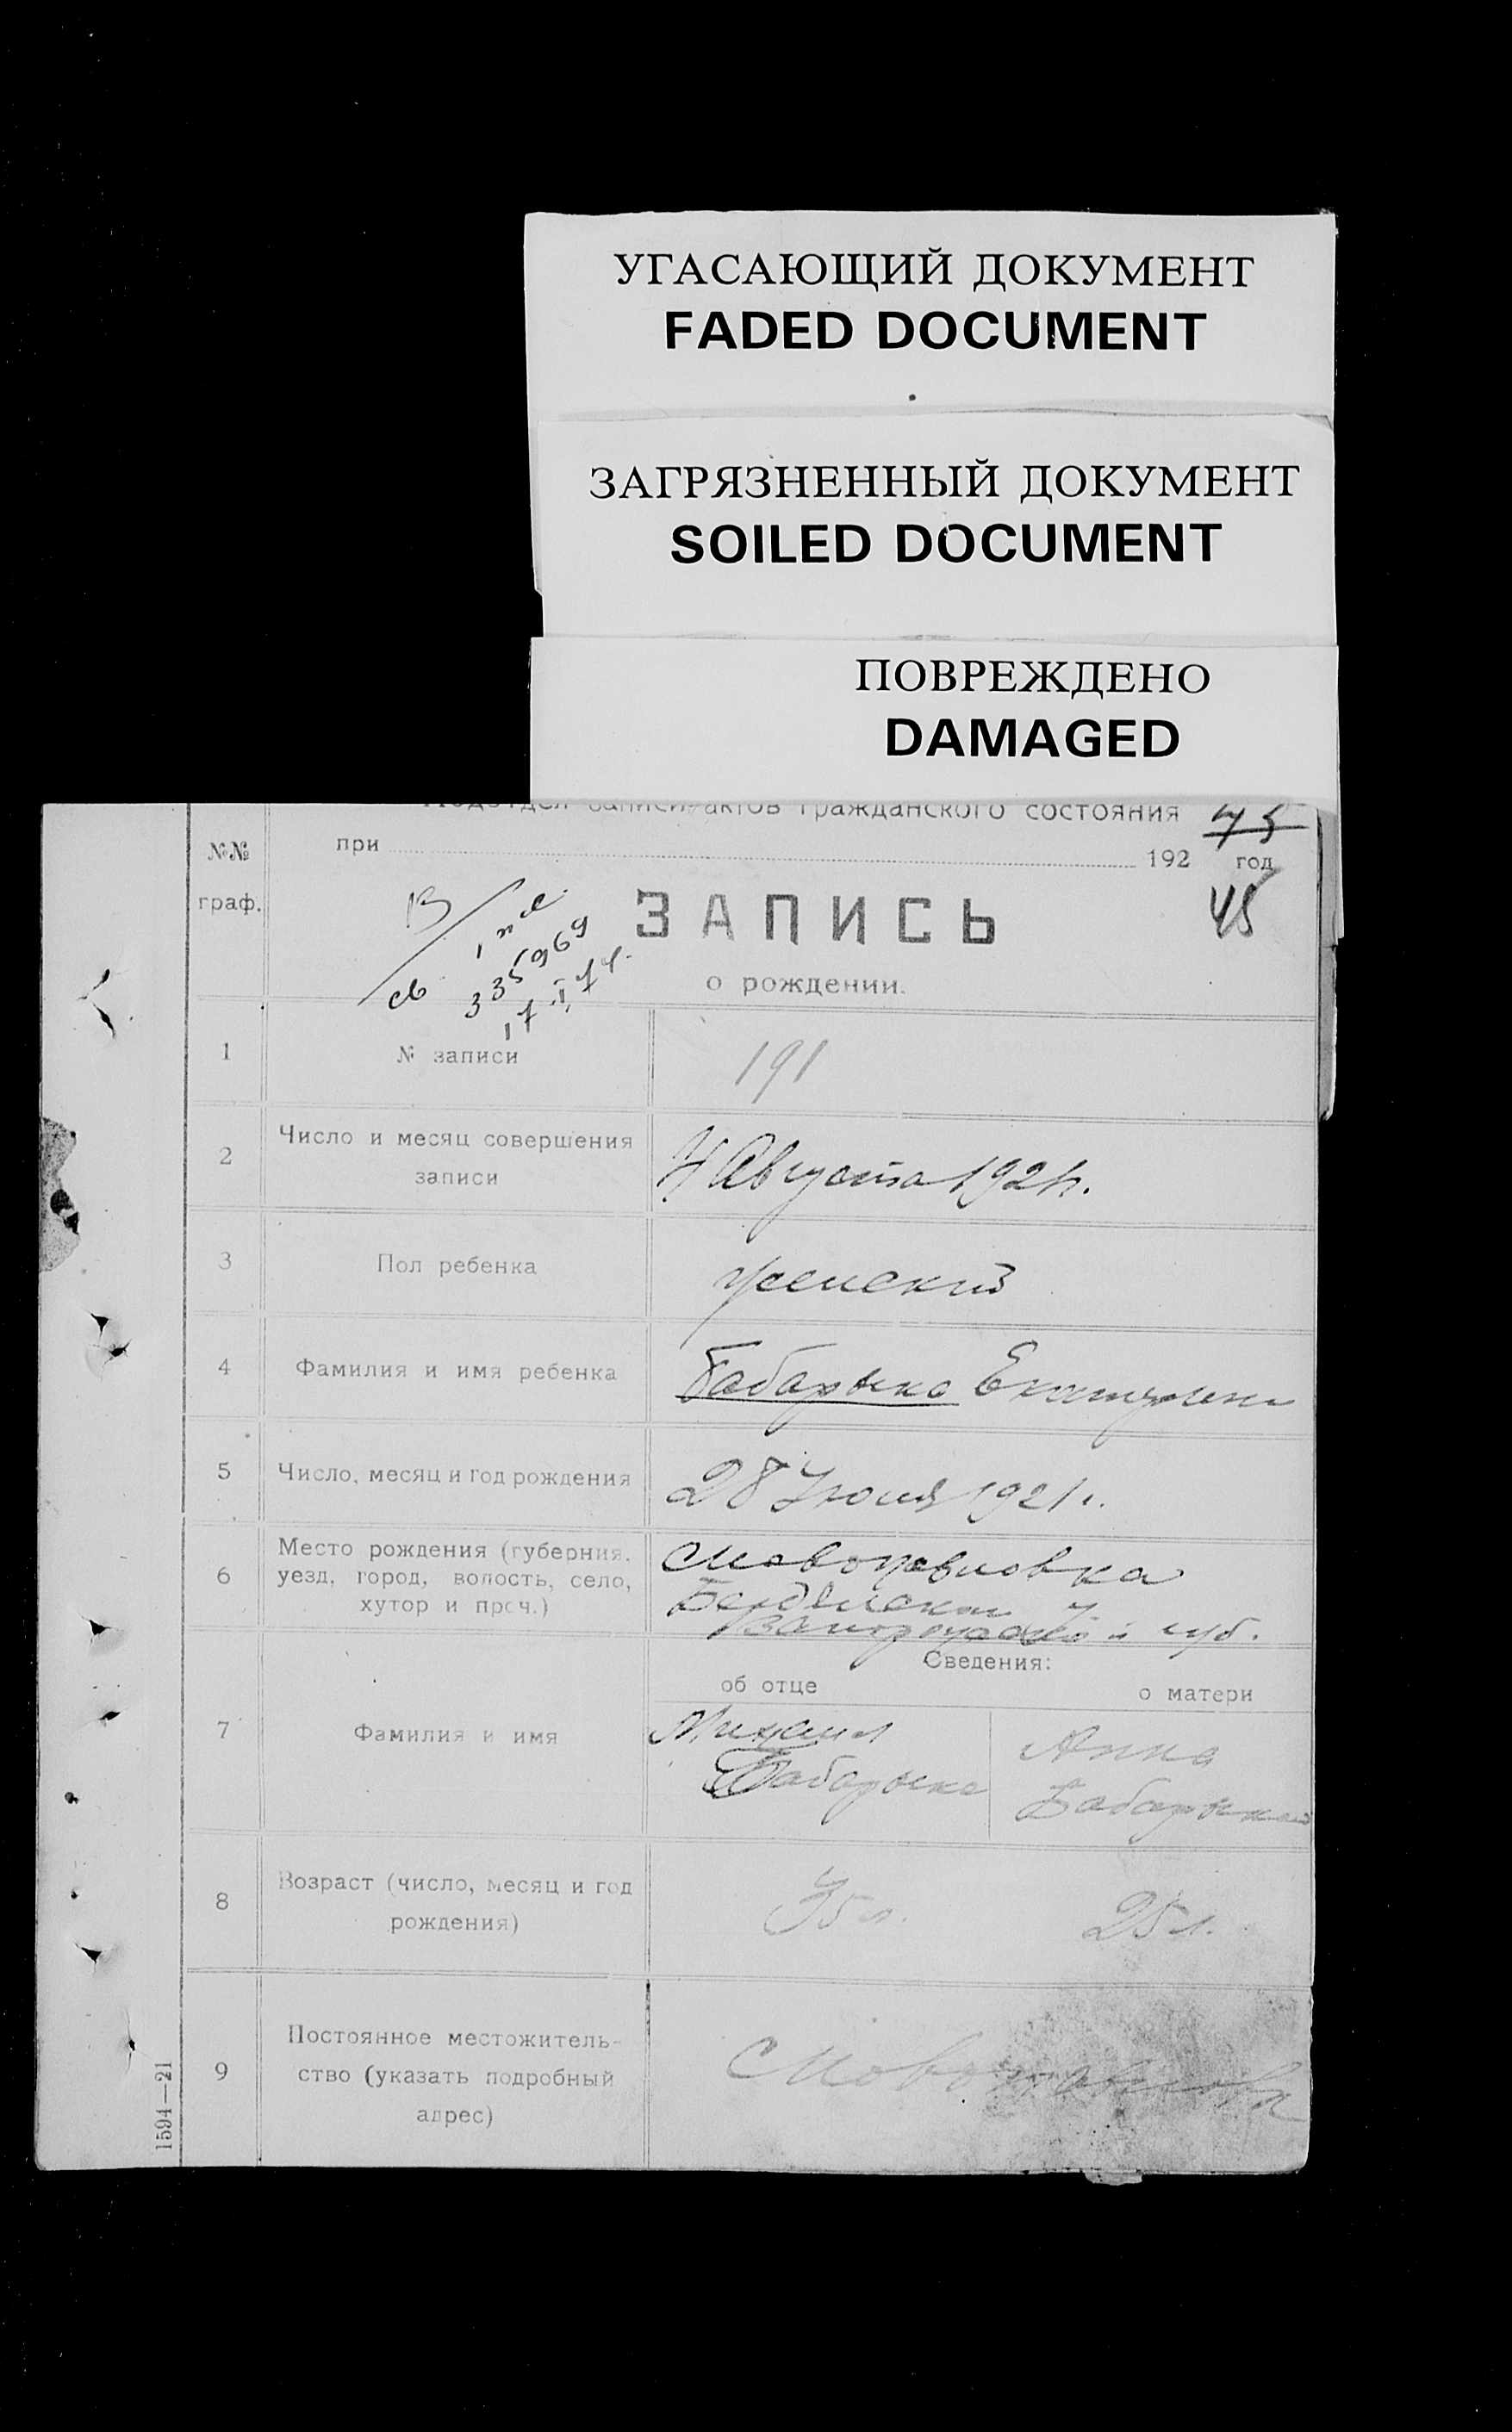 УГАСАЮЩИЙ ДОКУМЕНТ
FADED DOCUMENT
ЗАГРЯЗНЕННЫЙ ДОКУМЕНТ
SOILED DOCUMENT
ПОВРЕЖДЕНО
DAMAGED
Подотдел записи актов гражданского состояния 75
при 192 год
№№
граф.
ЗАПИСЬ 45
о рождении.
св 335969
1 № записи 191
2 Число и месяц совершения
записи
4 Августа 1921 г.
3 Пол ребенка женский
4 Фамилия и имя ребенка Бабарыка Екатерина
5 Число, месяц и год рождения 28 1921 г.
6 Место рождения (губерния,
уезд, город, волость, село,
хутор и проч.)
с Новопавловка
Бердянского у
Запорожской губ.
Сведения:
об отце о матери
7 Фамилия и имя
Михаил Анна
Бабарыка Бабарыка
8 Возраст (число, месяц и год
рождения)
35 л. 25 л.
9 Постоянное местожитель-
ство (указать подробный
адрес)
с Новопавловка
1594—21